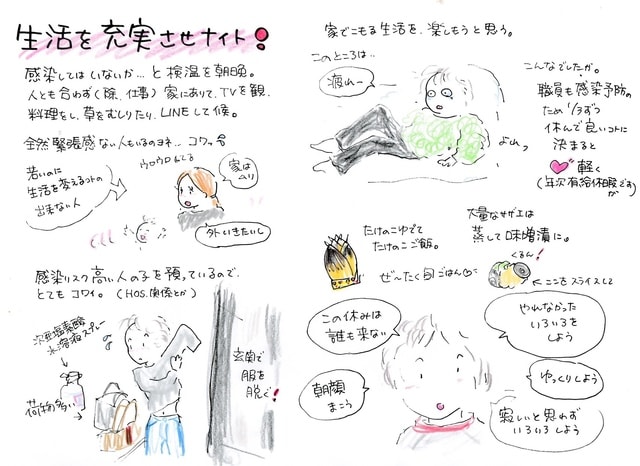 生活を充実させナイト!
感染してはいないか…と検温を朝晩。
人とも合わずく除、仕事〉家にありて、TVを観、
料理をし、草をむしりたり、LINEして候。
全然緊張感ない人もいるのよネ…コワっ
若いのに
生活を変えるコトの
出来ない人
ウロウロしてる
家は
ムリ
外いきたいし
感染リスク高い人の子を預っているので、
とてもコワイ。(HOS.関係とか)
次亜塩素酸
水溶液スプレー
荷物多い
玄関で
服を
脱ぐ!
家でこもる生活を、楽しもうと思う。
このところは…
疲れー
よれっ
こんなでしたが。
職員も感染予防の
ため1/3ずつ
休んで良いコトに
決まると
軽く
(年次有給休暇ですが)
たけのこゆでて
たけのこご飯。
ぜ〜たく旬ごはん♡
大量なサザエは
蒸して味噌漬に。
くるん!
ここをスライスして
この休みは
誰も来ない
朝顔
まこう
やれなかった
いろいろを
しよう
ゆっくりしよう
寂しいと思わず
いろいろしよう